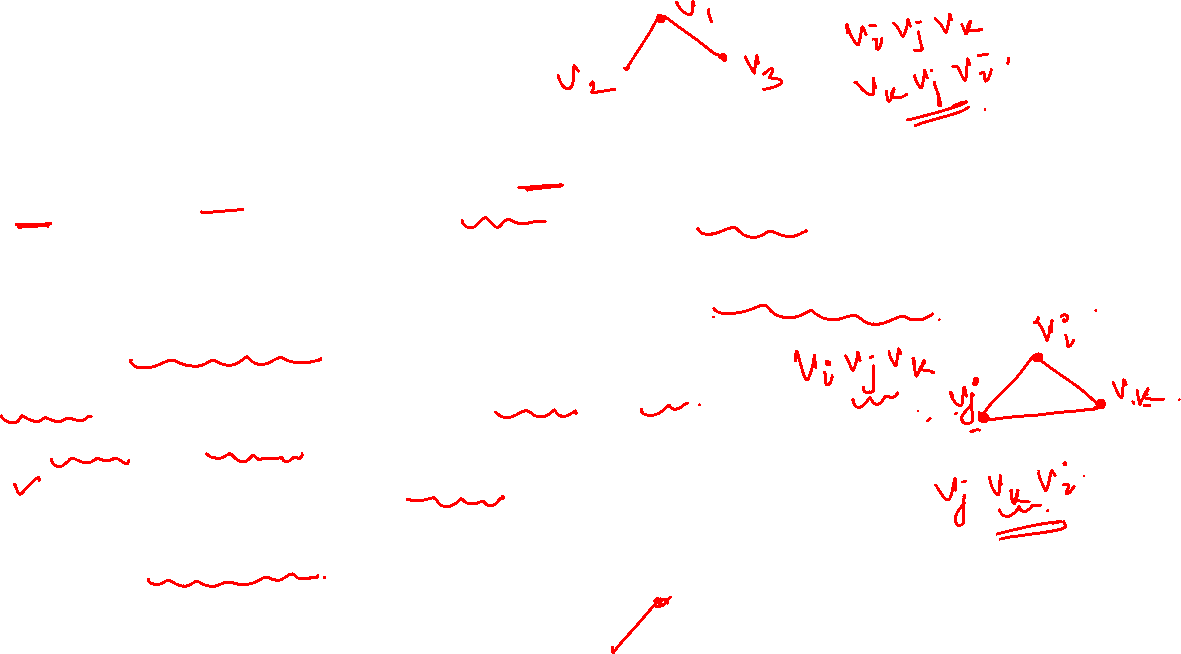 v1
v2 v3
vi vj vk
vk vj vi
vi vj vk
vi
vj vk
vj vk vi